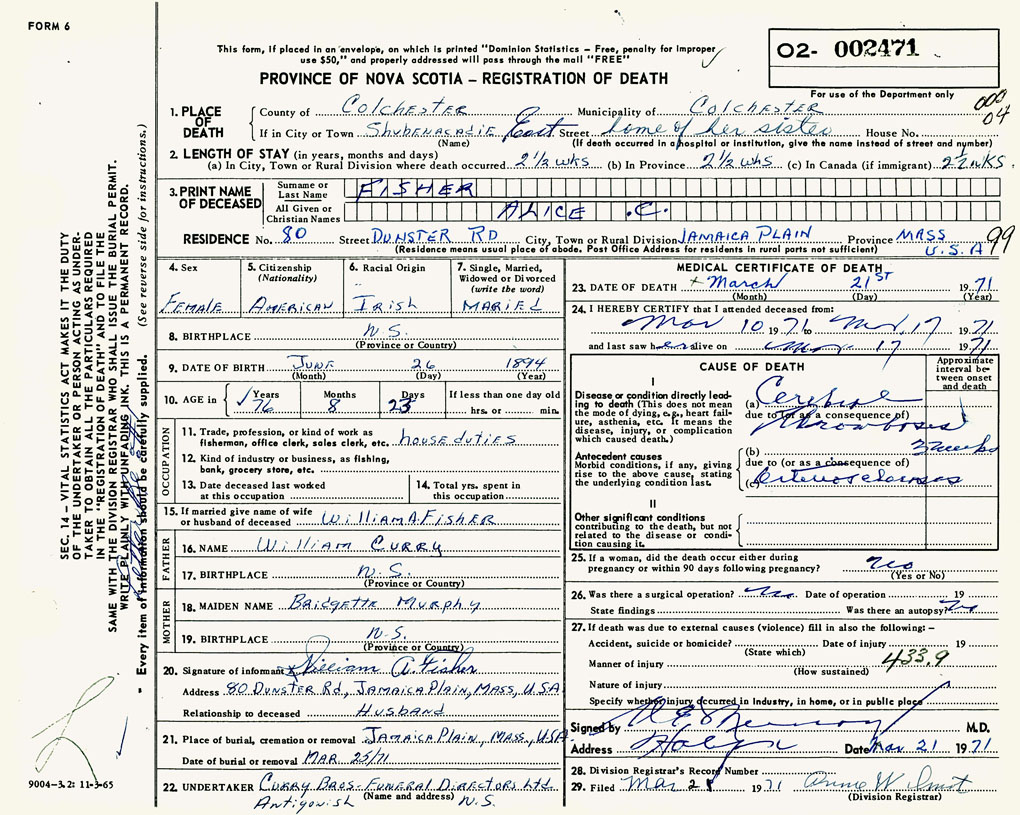 FORM 6
This form, if placed in an envelope, on which is printed "Dominion Statistics – Free, penalty for improper
use $50," and properly addressed will pass through the mail "FREE"
PROVINCE OF NOVA SCOTIA – REGISTRATION OF DEATH
02- 002471
For use of the Department only
000
04
1. PLACE OF DEATH
County of COLCHESTER Municipality of COLCHESTER
If in City or Town SHUBENACADIE East Street home of her sister House No.
(Name) (If death occurred in a hospital or institution, give the name instead of street and number)
2. LENGTH OF STAY (in years, months and days)
(a) In City, Town or Rural Division where death occurred 2½ WKS (b) In Province 2½ WKS (c) In Canada (if immigrant) 2½ WKS
3. PRINT NAME OF DECEASED
Surname or Last Name FISHER
All Given or Christian Names ALICE .C.
RESIDENCE No. 80 Street DUNSTER RD City, Town or Rural Division JAMAICA PLAIN Province MASS
(Residence means usual place of abode. Post Office Address for residents in rural ports not sufficient) U.S.A 99
4. Sex 5. Citizenship (Nationality) 6. Racial Origin 7. Single, Married, Widowed or Divorced (write the word)
FEMALE AMERICAN IRISH MARIED
8. BIRTHPLACE N.S.
(Province or Country)
9. DATE OF BIRTH JUNE 26 1894
(Month) (Day) (Year)
10. AGE in Years Months Days If less than one day old
76 8 23 hrs. or min.
OCCUPATION
11. Trade, profession, or kind of work as fisherman, office clerk, sales clerk, etc. house duties
12. Kind of industry or business, as fishing, bank, grocery store, etc.
13. Date deceased last worked at this occupation
14. Total yrs. spent in this occupation
15. If married give name of wife or husband of deceased WILLIAM A. FISHER
FATHER
16. NAME WILLIAM CURRY
17. BIRTHPLACE N.S.
(Province or Country)
MOTHER
18. MAIDEN NAME BRIDGETTE MURPHY
19. BIRTHPLACE N.S.
(Province or Country)
20. Signature of informant William A. Fisher
Address 80 DUNSTER Rd, JAMAICA PLAIN, MASS, USA
Relationship to deceased HUSBAND
21. Place of burial, cremation or removal JAMAICA PLAIN, MASS, USA
Date of burial or removal MAR 25/71
22. UNDERTAKER CURRY BROS- FUNERAL DIRECTORS Ltd.
(Name and address)
ANTIGONISH N.S.
MEDICAL CERTIFICATE OF DEATH
23. DATE OF DEATH March 21ST 1971
(Month) (Day) (Year)
24. I HEREBY CERTIFY that I attended deceased from:
Mar 10 1971 to Mar 17 1971
and last saw her alive on Mar 17 1971
CAUSE OF DEATH
Approximate interval between onset and death
I
Disease or condition directly leading to death (This does not mean the mode of dying, e.g., heart failure, asthenia, etc. It means the disease, injury, or complication which caused death.)
(a) Cerebral
due to (or as a consequence of)
Thrombosis
Antecedent causes
Morbid conditions, if any, giving rise to the above cause, stating the underlying condition last.
(b) 3 weeks
due to (or as a consequence of)
(c) Arteriosclerosis
II
Other significant conditions contributing to the death, but not related to the disease or condition causing it.
25. If a woman, did the death occur either during pregnancy or within 90 days following pregnancy? No
(Yes or No)
26. Was there a surgical operation? No Date of operation 19
State findings Was there an autopsy? No
27. If death was due to external causes (violence) fill in also the following: –
Accident, suicide or homicide? Date of injury 19
(State which)
Manner of injury 433.9
(How sustained)
Nature of injury
Specify whether injury occurred in industry, in home, or in public place
Signed by M.D.
Address Date Mar 21 1971
28. Division Registrar's Record Number
29. Filed Mar 1971
(Division Registrar)
SEC. 14 – VITAL STATISTICS ACT MAKES IT THE DUTY
OF THE UNDERTAKER OR PERSON ACTING AS UNDER-
TAKER TO OBTAIN ALL THE PARTICULARS REQUIRED
IN THE "REGISTRATION OF DEATH" AND TO FILE THE
SAME WITH THE DIVISION REGISTRAR WHO SHALL ISSUE THE BURIAL PERMIT.
WRITE PLAINLY WITH UNFADING INK. THIS IS A PERMANENT RECORD.
Every item of information should be carefully supplied. (See reverse side for instructions.)
9004-3.2: 11-3-65